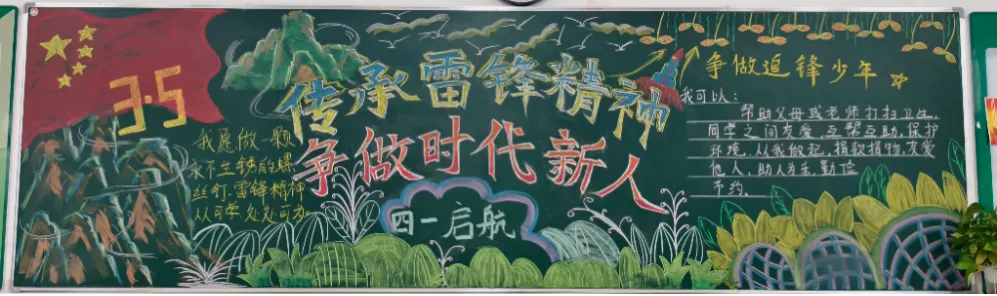 3·5
我愿做一颗
永不生锈的螺
丝钉,雷锋精神
人人可学处处可为
传承雷锋精神
争做时代新人
四一启航
争做追锋少年
我可以:
帮助父母或老师打扫卫生,
同学之间友爱,互帮互助,保护
环境,从我做起,捐款捐物,友爱
他人,助人为乐,勤俭
节约。